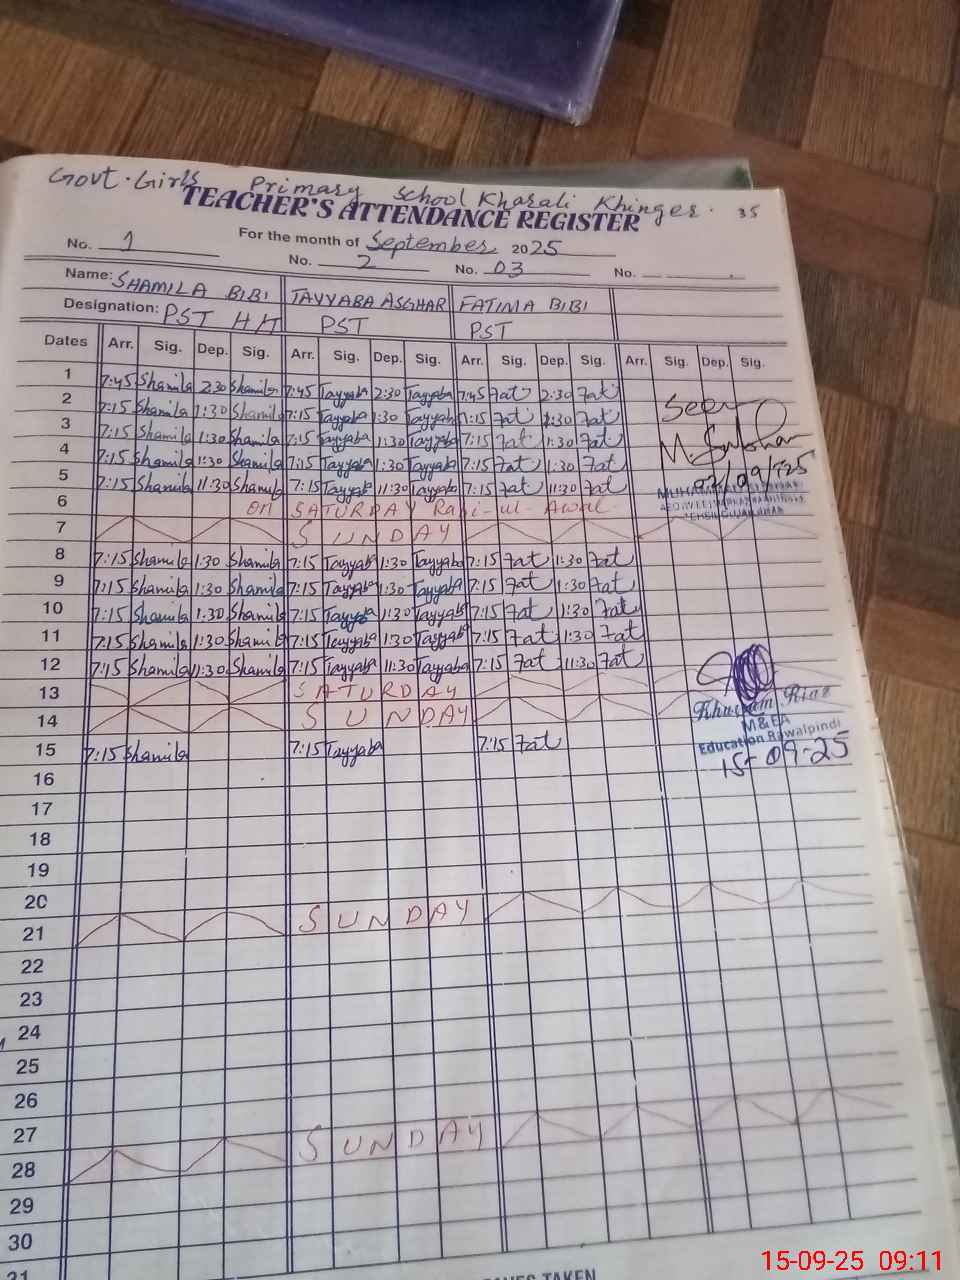 Govt. Girls Primary School Kharali Khinger. 35
TEACHER'S ATTENDANCE REGISTER
For the month of September 2025
No. 1 No. 2 No. 03 No.
Name: SHAMILA BIBI TAYYABA ASGHAR FATIMA BIBI
Designation: PST HH PST PST
Dates Arr. Sig. Dep. Sig. Arr. Sig. Dep. Sig. Arr. Sig. Dep. Sig. Arr. Sig. Dep. Sig.
1 7:45 Shamila 2:30 Shamila 7:45 Tayyaba 2:30 Tayyaba 7:45 Fat 2:30 Fat
2 7:15 Shamila 1:30 Shamila 7:15 Tayyaba 1:30 Tayyaba 7:15 Fat 1:30 Fat
Seen
3 7:15 Shamila 1:30 Shamila 7:15 Tayyaba 1:30 Tayyaba 7:15 Fat 1:30 Fat
4 7:15 Shamila 1:30 Shamila 7:15 Tayyaba 1:30 Tayyaba 7:15 Fat 1:30 Fat
5 7:15 Shamila 11:30 Shamila 7:15 Tayyaba 11:30 Tayyaba 7:15 Fat 11:30 Fat
6 on SATURDAY Rabi-ul-Awal
7 SUNDAY
8 7:15 Shamila 1:30 Shamila 7:15 Tayyaba 1:30 Tayyaba 7:15 Fat 1:30 Fat
9 7:15 Shamila 1:30 Shamila 7:15 Tayyaba 1:30 Tayyaba 7:15 Fat 1:30 Fat
10 7:15 Shamila 1:30 Shamila 7:15 Tayyaba 1:30 Tayyaba 7:15 Fat 1:30 Fat
11 7:15 Shamila 1:30 Shamila 7:15 Tayyaba 1:30 Tayyaba 7:15 Fat 1:30 Fat
12 7:15 Shamila 11:30 Shamila 7:15 Tayyaba 11:30 Tayyaba 7:15 Fat 11:30 Fat
13 SATURDAY
14 SUNDAY
Khurram Riaz
M&EA
Education Rawalpindi
15-09-25
15 7:15 Shamila 7:15 Tayyaba 7:15 Fat
16
17
18
19
20
21 SUNDAY
22
23
24
25
26
27
28 SUNDAY
29
30
31
TAKEN
15-09-25 09:11